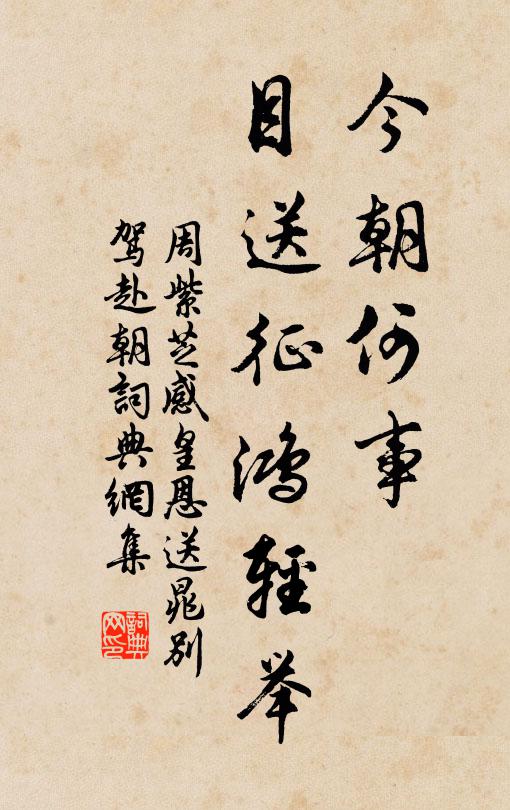 今朝何事
目送征鴻輕举
周紫芝感皇恩送晁別
駕赴朝詞典網集
詞典
网印